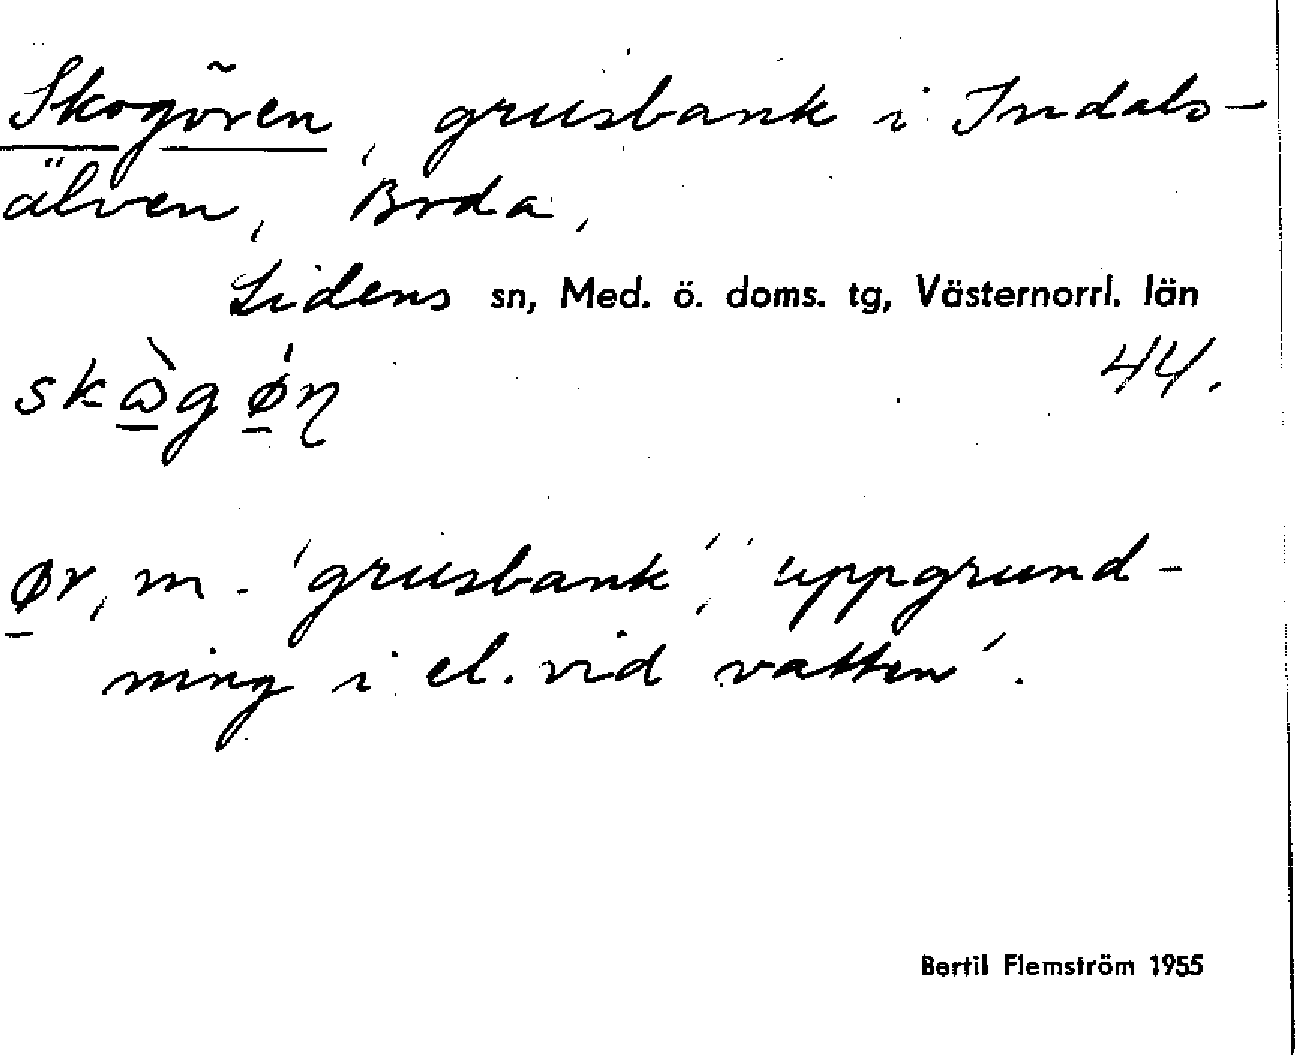 Skogören, grusbank i Indals-
älven, Boda,
Lidens sn, Med. ö. doms. tg, Västernorrl. län
44.
ør, m. 'grusbank', 'uppgrund-
ning i el. vid vatten'.
Bertil Flemström 1955